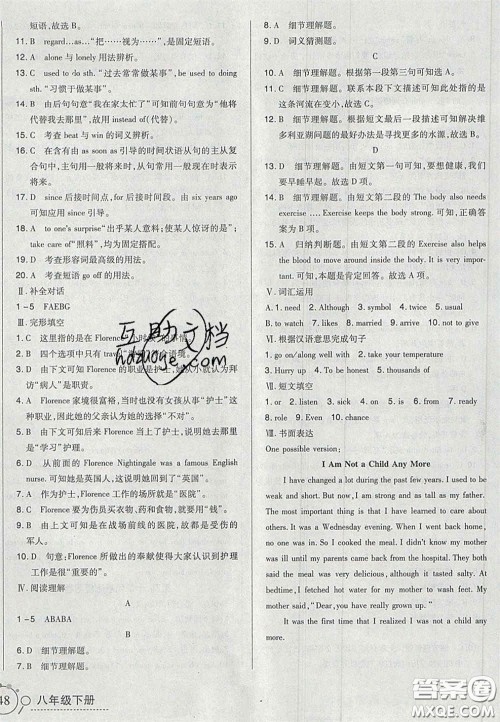 短语,故选 B。
11. B　regard…as…“把……视为……”,是固定短语。
12. A　alone 与 lonely 用法辨析。
13. C　used to do sth. “过去常常做某事”,be used to doing sth. “习惯于做某事”。
14. B　由后句句意“我在家太忙了”可知前句句意为“他将代替我去那里”,故用 instead of(代替)。
15. C　考查 beat 与 win 的词义辨析。
16. D　在含有由 as soon as 引导的时间状语从句的主从复合句中,主句用一般将来时,从句常用一般现在时代替一般将来时。
17. D　since 后接时间点,for 后接时间段。由 six years ago 可知应用 since 引导。
18. A　to one's surprise“出乎某人意料;使某人惊讶的是”;take care of“照料”,均为固定搭配。
19. D　考查形容词最高级的用法。
20. A　考查短语 go off 的用法。
Ⅱ. 补全对话
1-5　FAEBG
Ⅲ. 完形填空
1. C　这里指的是在 Florence 小时候的事情。
2. B　四个选项中只有 travel
3. B　由下文可知 Florence 的职业是护士,她从小就为拜访“病人”而鼓掌。
4. A　Florence 家境很富裕,当时没有女孩从事“护士”这种职业,因此她的父亲认为她的选择“不对”。
5. D　由下文可知 Florence 成了护士,所以,说明她去那里是“学习”护理。
6. D　从前面的 Florence Nightingale was a famous English nurse. 可知,她回到了“英国”。
7. A　作为护士,Florence 工作的场所是“医院”。
8. C　要为伤员买衣物、药品等,需要的是“钱”。
9. B　由上文可知是在战场前线的医院,故都是受伤的军人。
10. D　句意:Florence 所做出的奉献使大家认识到护理工作是很“重要的”。
Ⅳ. 阅读理解
A
1-5　ABABA
B
6. D　细节理解题。
7. B　细节理解题。
48　八年级下册
8. A　细节理解题。
9. D　词义猜测题。
C
10. A　细节理解题。根据第一段第三句可知选 A。
11. C　细节理解题。联系本段下文描述可知此处指的是这条河流在变干。
12. B　细节理解题。由文章最后一句可知解决维多利亚期问题的最好办法是寻找更多的水源,故选 B。
13. D　细节理解题。由短文第一句可知,我们要早睡早起。故选 D 项。
14. A　细节理解题。由短文第二段的 The body also needs exercise …. Exercise keeps the body strong. 可知,正确答案为 B。
15. A　归纳判断题。由短文第二段的 Exercise also helps the blood to move around inside the body. This is very important. 可知,本题是肯定回答。故选 A。
Ⅴ. 词汇运用
A. 1. need　2. Although　3. sympathy　4. twice　5. used
B. 1. to be　2. known　3. married　4. to share　5. right
Ⅵ. 根据汉语意思完成句子
1. go on/along well with　2. take your temperature
3. Hurry up　4. get on/along　5. used to
Ⅶ. 短文填空
1. away　2. or　3. either　4. right　5. wanted
Ⅷ. 书面表达
One possible version:
I Am Not a Child Any More
I have changed a lot during the past few years. I used to be weak and short. But now, I am strong and as tall as my father. The most important thing is that I have grown up at heart. It was a Wednesday evening. When I went back home, no one was in. I had to cook the meal and do my homework alone. I was told that my mother was ill until my parents came back from the hospital. They said the meal was very delicious, although it tasted terrible. At bedtime, I fetched hot water to wash my mother's feet. My mother said, “Dear, you have really grown up.”
It was the first time that I realized I was not a child any more.
互助文档
hdzuoye.com
答案圈
MXQE.COM